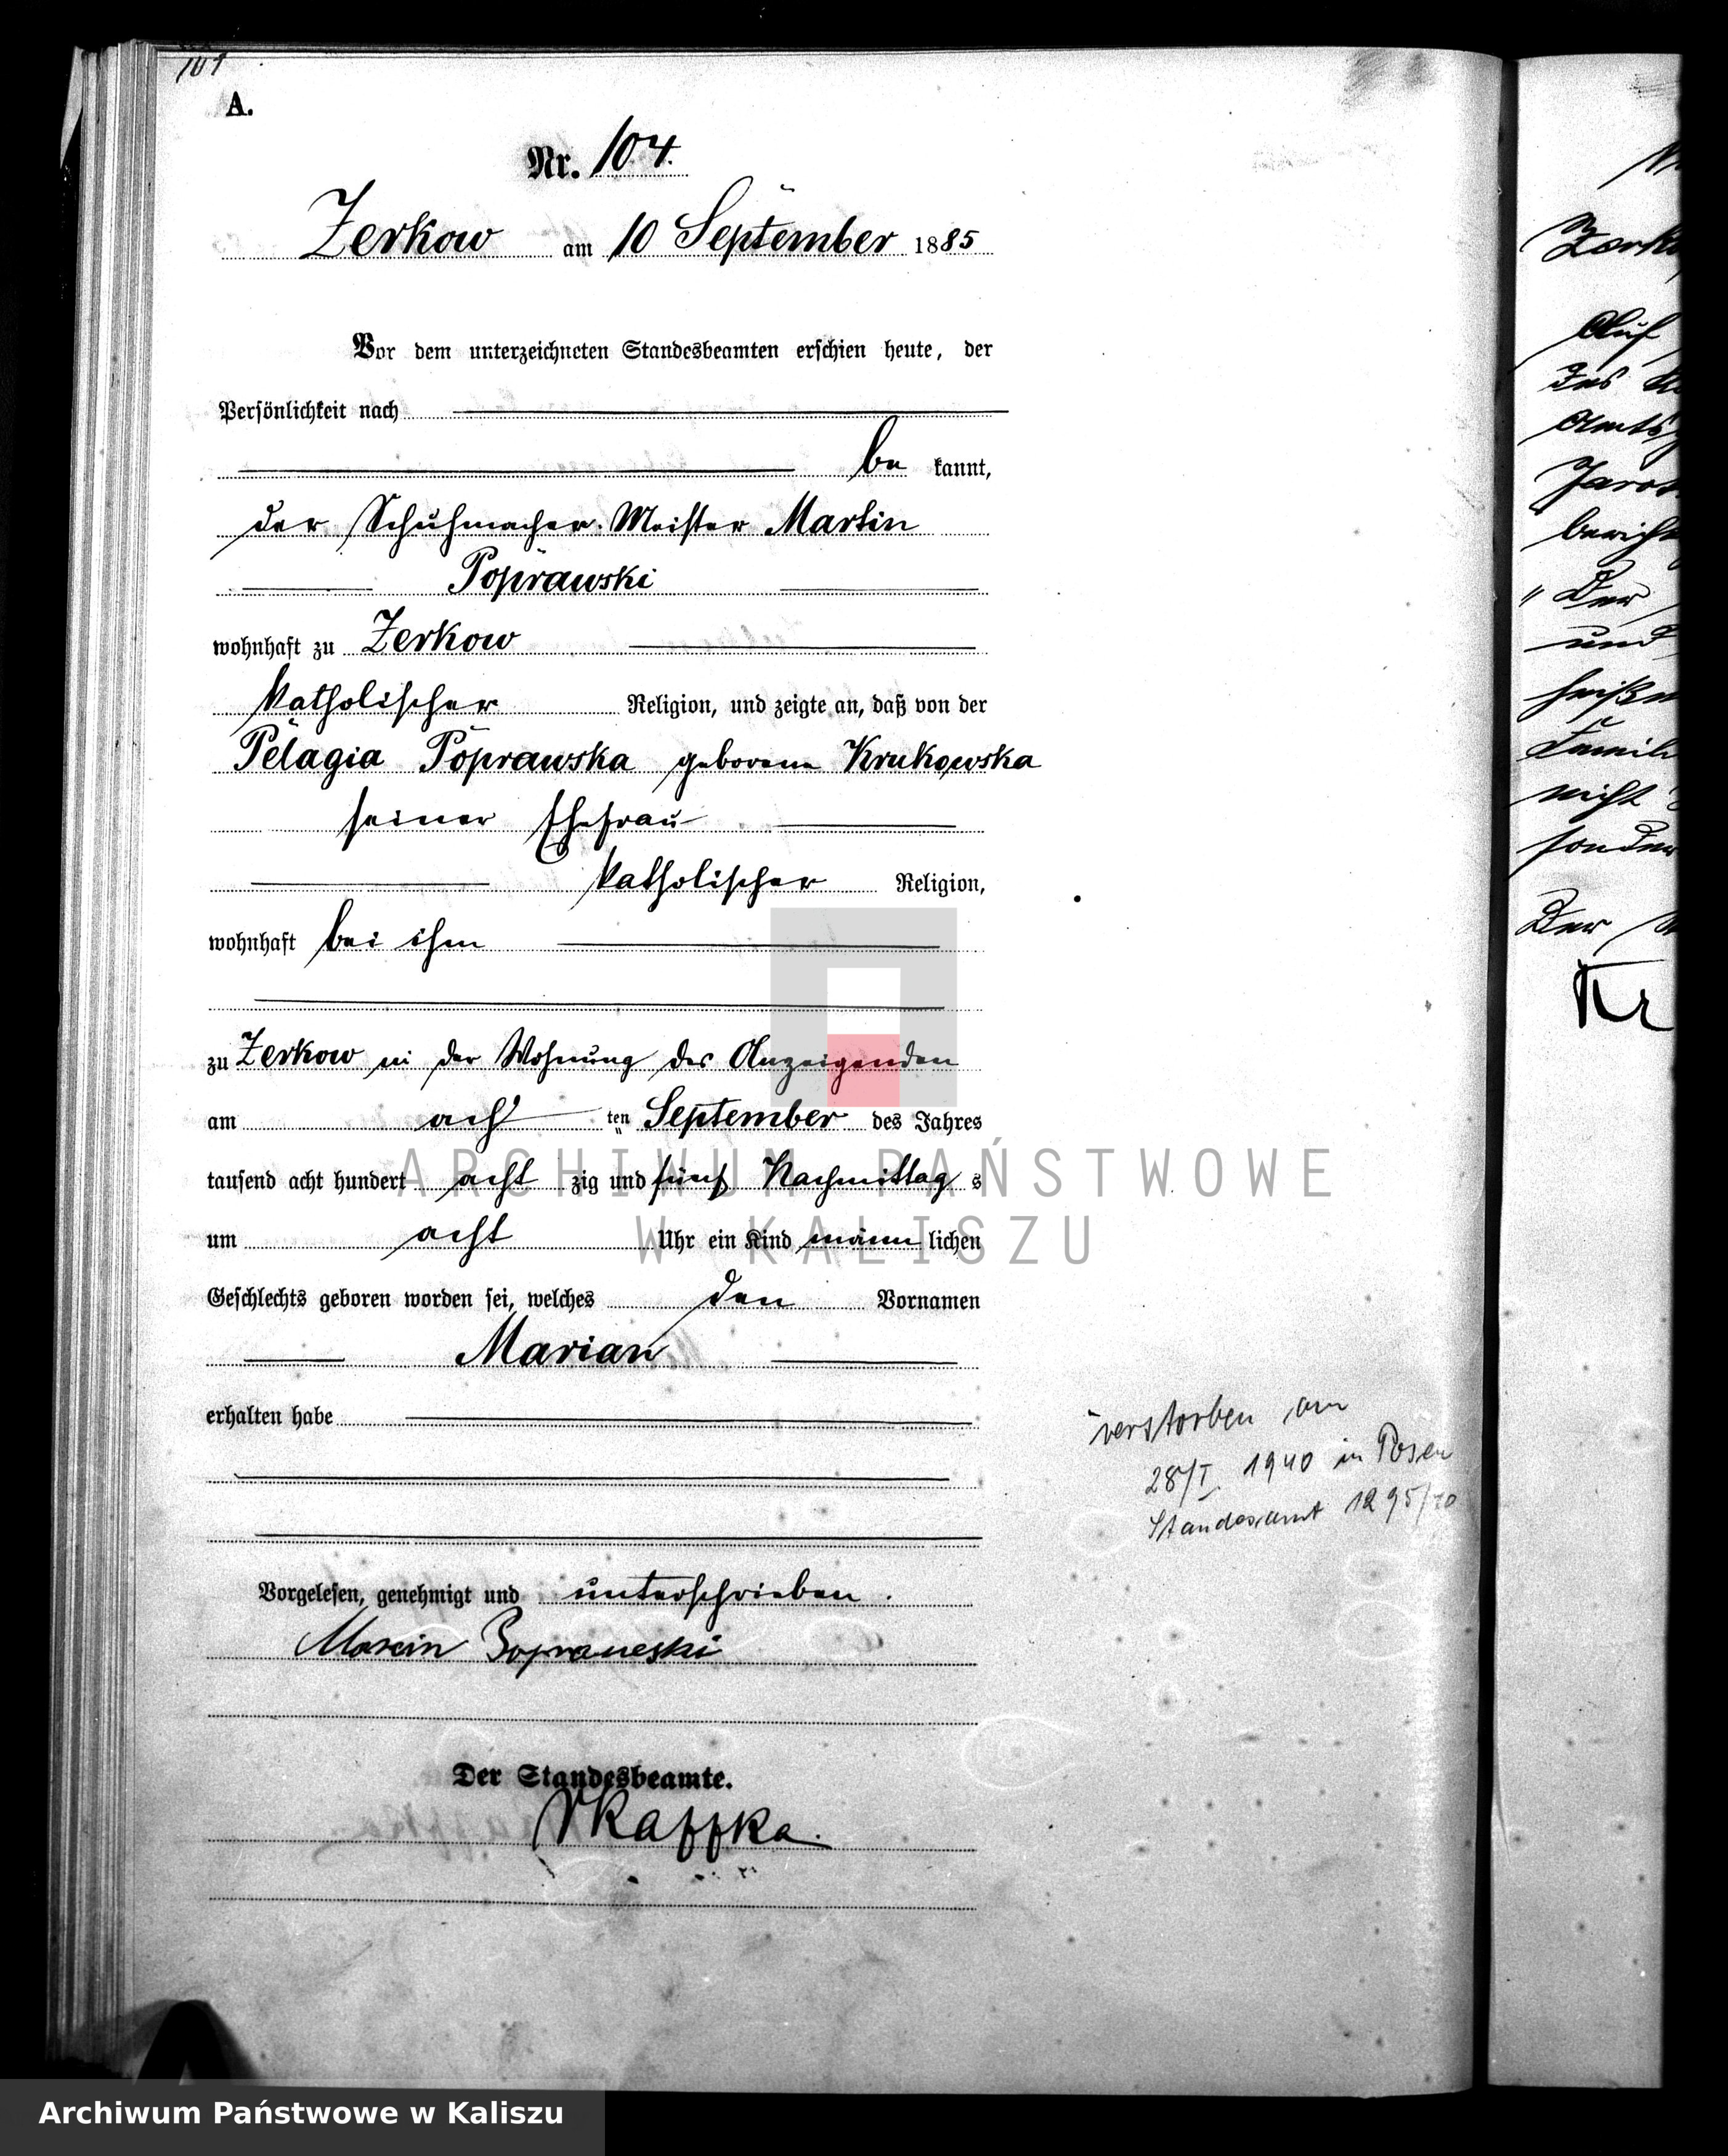 A.
Nr. 104.
Zerkow am 10 September 1885
Vor dem unterzeichneten Standesbeamten erschien heute, der
Persönlichkeit nach
be kannt,
der Schuhmacher-Meister Martin
Poprawski
wohnhaft zu Zerkow
katholischer Religion, und zeigte an, daß von der
Pelagia Poprawska geborene Krukowska
seiner Ehefrau
katholischer Religion,
wohnhaft bei ihm
zu Zerkow in der Wohnung des Anzeigenden
am acht ten September des Jahres
tausend acht hundert acht zig und fünf Nachmittag s
um acht Uhr ein Kind männ lichen
Geschlechts geboren worden sei, welches den Vornamen
Marian
erhalten habe
Vorgelesen, genehmigt und unterschrieben.
Marcin Poprawski
Der Standesbeamte.
Kaffka.
verstorben am
28/I. 1940 in Posen
Standesamt 1295/40
Auf
Der
und
nicht
Der
ARCHIWUM PAŃSTWOWE
W KALISZU
Archiwum Państwowe w Kaliszu